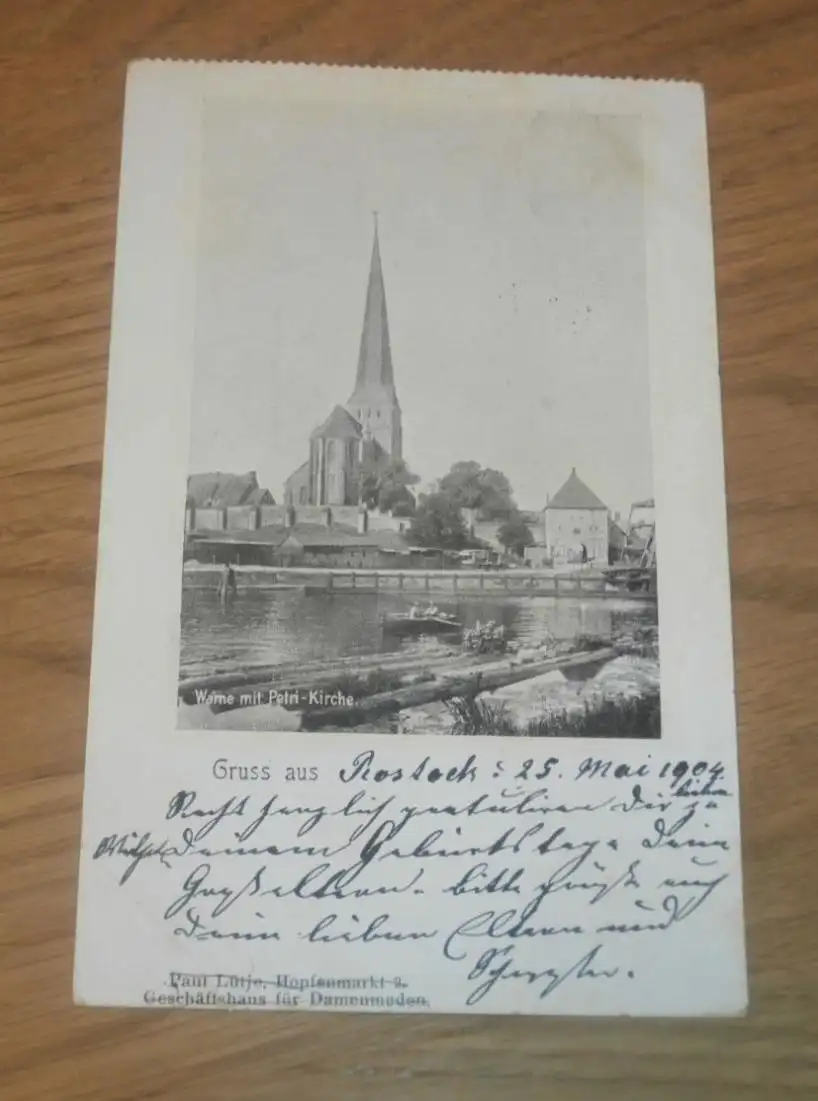 Warne mit Petri-Kirche.
Gruss aus Rostock : 25. Mai 1904.
Recht herzlich gratuliren Dir zu
lieber
Deinem Geburtstage Deine
Großeltern. bitte grüße auch
Deine lieben Eltern und
Schwester.
Paul Lütje, Hopfenmarkt 2.
Geschäftshaus für Damenmoden.